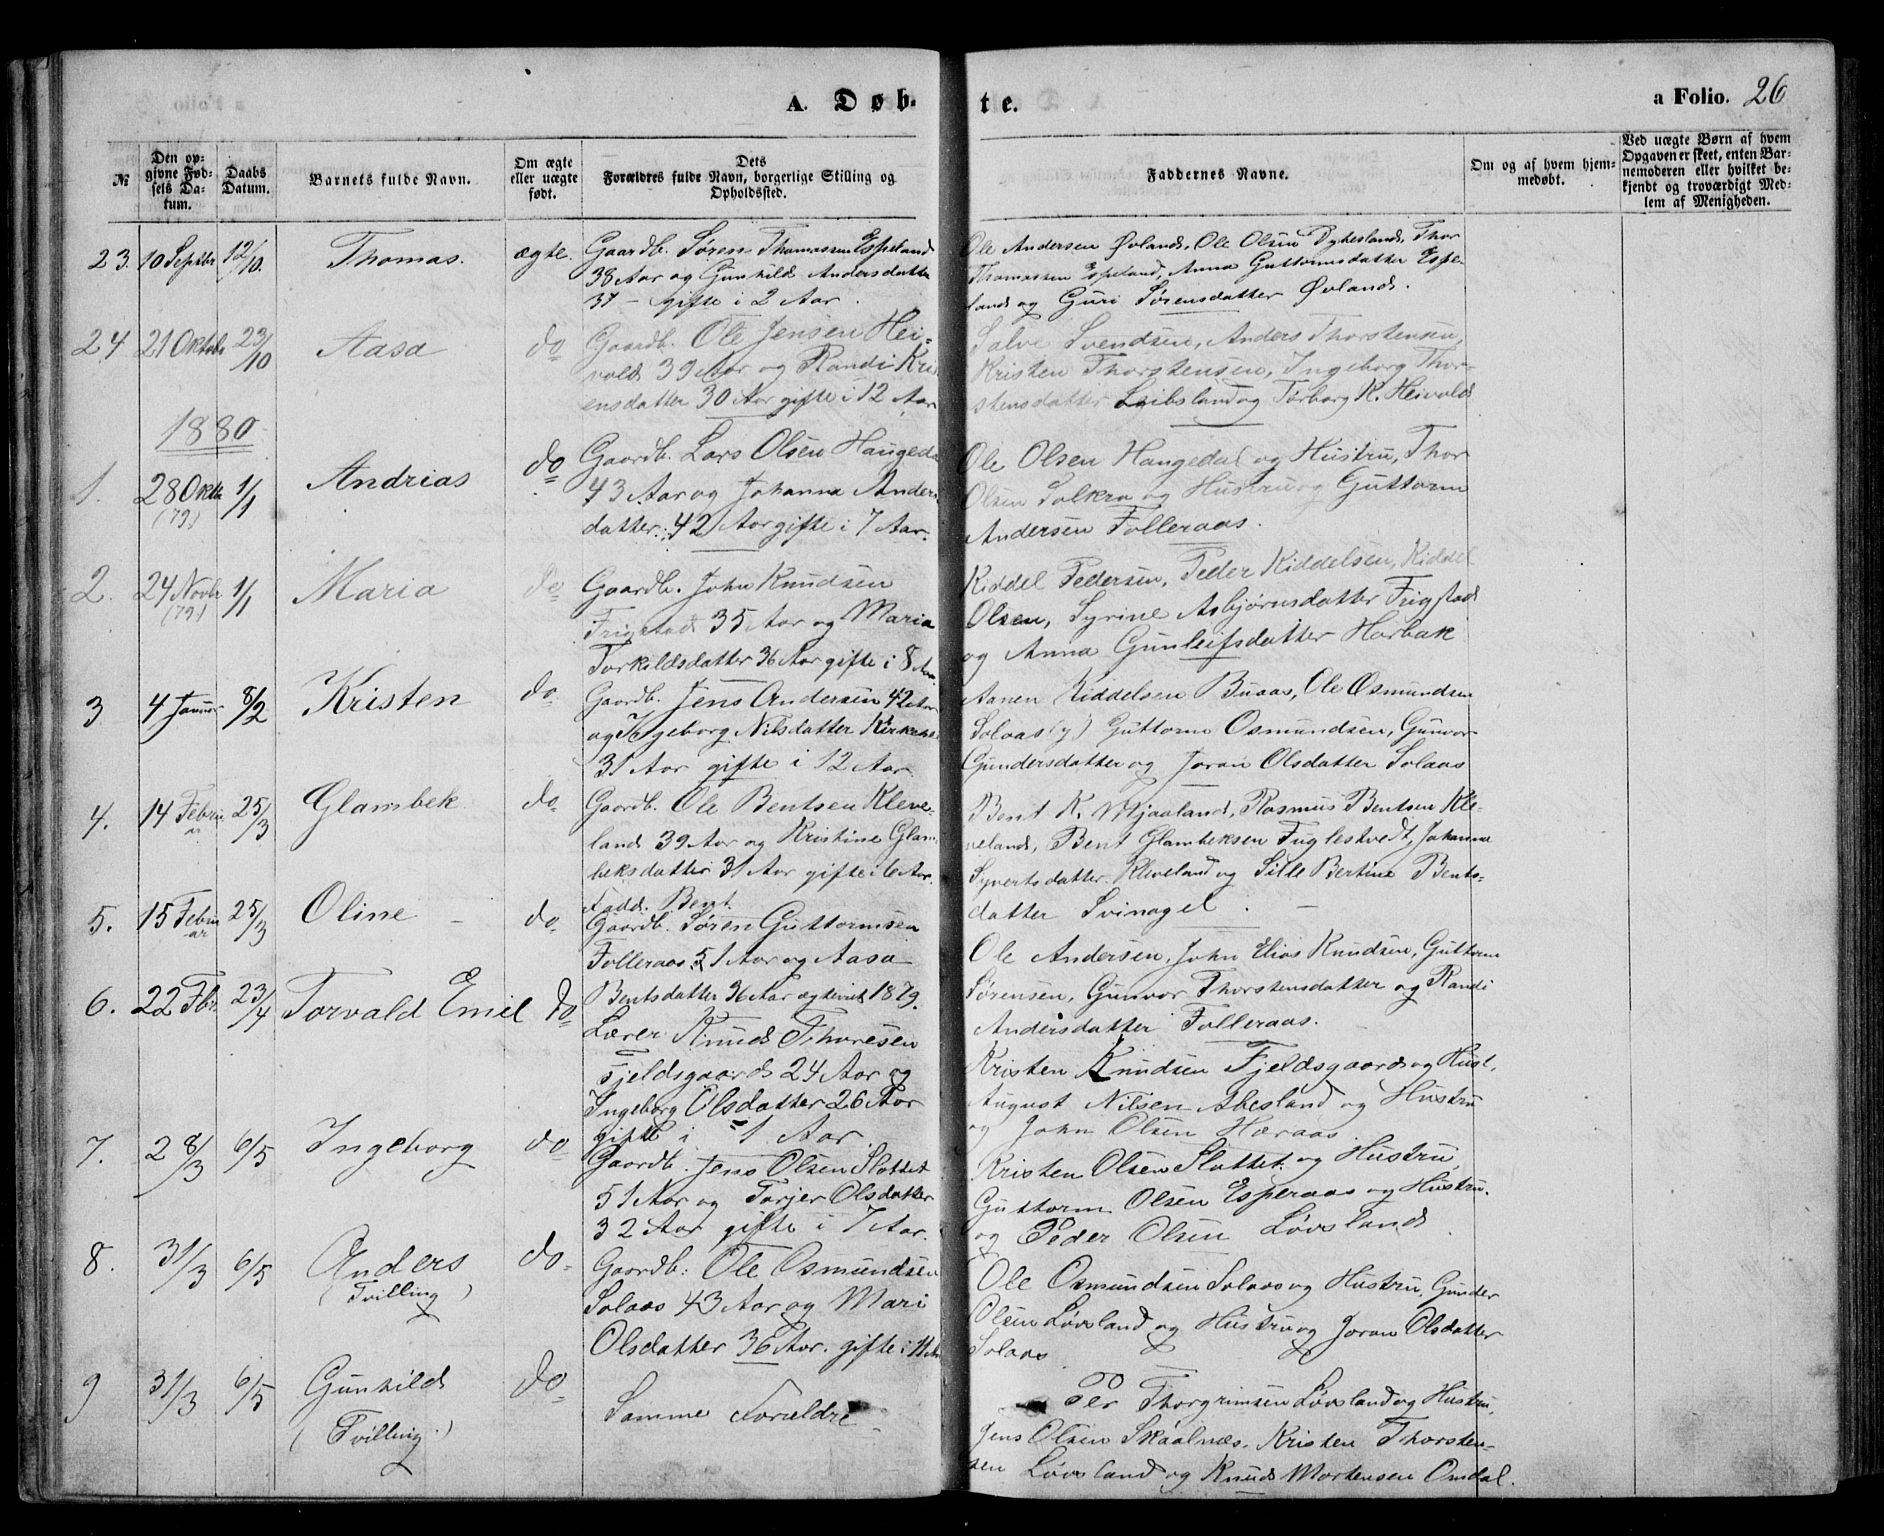 A. Døb-
te.
a Folio. 26
№
Den op-
givne Fød-
sels Da-
tum.
Daabs
Datum.
Barnets fulde Navn.
Om ægte
eller uægte
født.
Dets
Forældres fulde Navn, borgerlige Stilling og
Opholdssted.
Faddernes Navne.
Om og af hvem hjem-
medøbt.
Ved uægte Børn af hvem
Opgaven er skeet, enten Bar-
nemoderen eller hvilket be-
kjendt og troværdigt Med-
lem af Menigheden.
23. 10 Septbr 12/10. Thomas. ægte.
Gaardb. Søren Thomassen Espeland
38 Aar og Gunhild Andersdatter
37 – gifte i 2 Aar.
Ole Andersen Øvland, Ole Olsen Dybesland, Thor
Thomassen Espeland, Anna Guttormsdatter Espe-
land og Guri Sørensdatter Øvland.
24 21 Oktob 23/10 Aasa do
Gaardb. Ole Jensen Hei-
vold 39 Aar og Randi Kri
ensdatter 30 Aar gifte i 12 Aar
Salve Svendsen, Anders Thorstensen,
Kristen Thorstensen, Ingeborg Thor-
stensdatter Leibsland og Torborg K. Heivold
1880
1. 28 Oktr (79) 1/1 Andrias do
Gaardb. Lars Olsen Hauged
43 Aar og Johanna Anders
datter 42 Aar gifte i 7 Aar.
Ole Olsen Haugedal og Hustru, Thor
Olsen Solkra og Hustru og Guttorm
Andersen Folleraas.
2. 24 Novbr (79) 1/1 Maria do
Gaardb. John Knudsen
Frigstad 35 Aar og Maria
Torkildsdatter 36 Aar gifte i 8 Aar
Kiddel Pedersen, Peder Kiddelsen, Kiddel
Olsen, Syrine Asbjørnsdatter Frigstad
og Anna Gunleifsdatter Harbak
3 4 Januar 8/2 Kristen do
Gaardb. Jens Andersen 42 Aar
og Ingeborg Nilsdatter
31 Aar gifte i 12 Aar
Aanen Kiddelsen Buaas, Ole Osmundsen
Solaas (y) Guttorm Osmundsen, Gunvor
Gundersdatter og Joran Olsdatter Solaas
4. 14 Februar 25/3 Glambek do
Gaardb. Ole Bentsen Kleve-
land 39 Aar og Kristine Glam
beksdatter 31 Aar gifte i 6 Aar.
Fadd. Bent
Bent K. Mjaaland, Rasmus Bentsen Kle-
veland, Bent Glambeksen Fuglestvedt, Johanne
Syvertsdatter Kleveland og Sille Bertine Bents-
datter Svinagel.
5. 15 Februar 25/3 Oline – do
Gaardb. Søren Guttormsen
Folleraas 51 Aar og Aasa
Bentsdatter 36 Aar ægteviet 1879.
Ole Andersen, John Elias Knudsen, Guttorm
Sørensen, Gunvor Thorstensdatter og Randi
Andersdatter Folleraas.
6. 22 Fbr. 23/4 Torvald Emil do
Lærer Knud Thoresen
Fjeldsgaard 24 Aar og
Ingeborg Olsdatter 26 Aar
gifte i 1 Aar.
Kristen Knudsen Fjeldsgaard og Hust.
August Nilsen Abesland og Hustru
og John Olsen Haraas.
7. 28/3 6/5 Ingeborg do
Gaardb. Jens Olsen Slottet
51 Aar og Torjer Olsdatter
32 Aar gifte i 7 Aar.
Kristen Olsen Slottet og Hustru,
Guttorm Olsen Esperaas og Hustru.
og Peder Olsen Løvsland
8. 31/3 6/5 Anders do
(Tvilling)
Gaardb: Ole Osmundsen
Solaas 43 Aar og Mari
Olsdatter 36 Aar. gifte i 11 Aar
Ole Osmundsen Solaas og Hustru, Gunder
Olsen Løvsland og Hustru og Joran Olsdatter
Solaas
9 31/3 6/5 Gunhild do
(Tvilling)
Samme Forældre
Per Thorgrimsen Løvsland og Hustru,
Jens Olsen Skaalnæs, Kristen Thorsten-
sen Løvsland og Knud Mortensen Omdal.